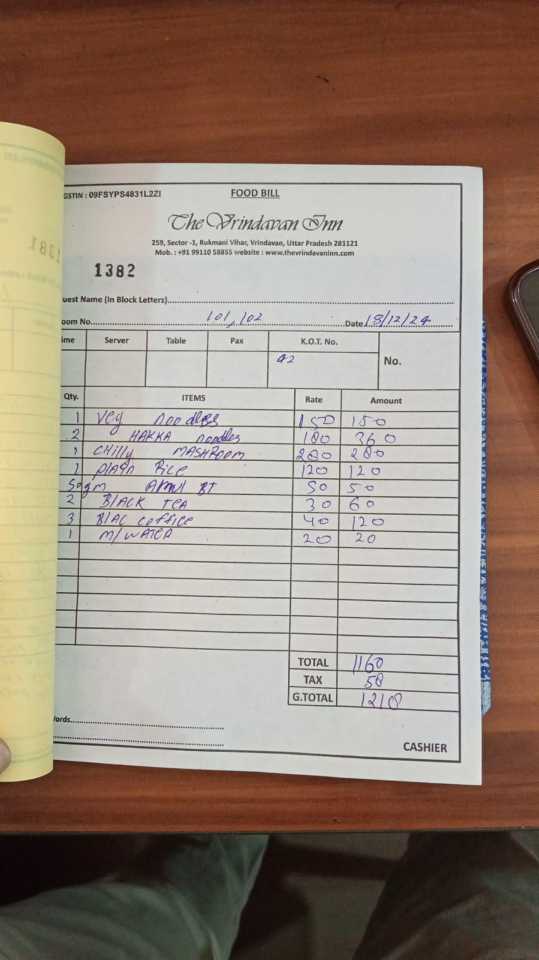 GSTIN : 09FSYPS4831L2ZI FOOD BILL
The Vrindavan Inn
259, Sector -1, Rukmani Vihar, Vrindavan, Uttar Pradesh 281121
Mob. : +91 99110 58855 website : www.thevrindavaninn.com
1381
1382
uest Name (in Block Letters)
oom No. 101, 102 Date 18/12/24
ime Server Table Pax K.O.T. No. No.
42
Qty. ITEMS Rate Amount
1 Veg noodles 150 150
2 HAKKA noodles 180 360
1 CHilly MASHROOM 280 280
1 plain Rice 120 120
50gm AMUl BT 50 50
2 BlACK TEA 30 60
3 BlAC coffice 40 120
1 M/WATER 20 20
TOTAL 1160
TAX 58
G.TOTAL 1218
ords
CASHIER